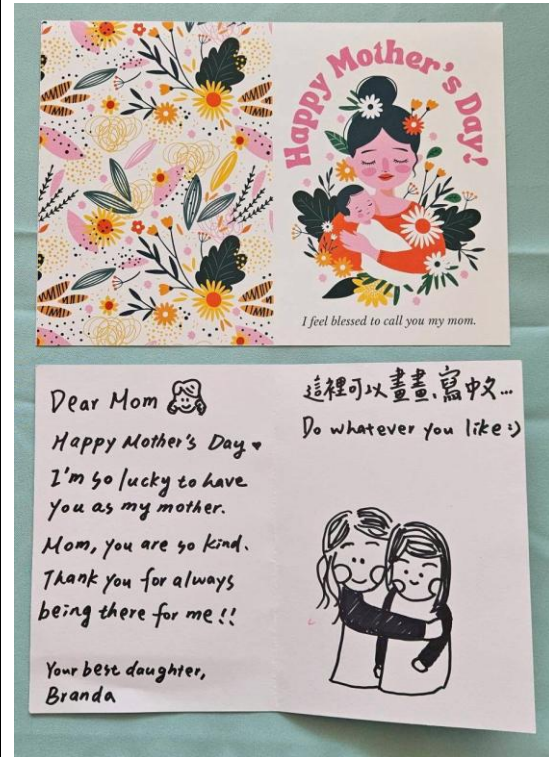 Happy Mother's Day!
I feel blessed to call you my mom.
Dear Mom
Happy Mother's Day ♥
I'm so lucky to have
you as my mother.
Mom, you are so kind.
Thank you for always
being there for me!!
Your best daughter,
Branda
這裡可以畫畫、寫中文...
Do whatever you like :)